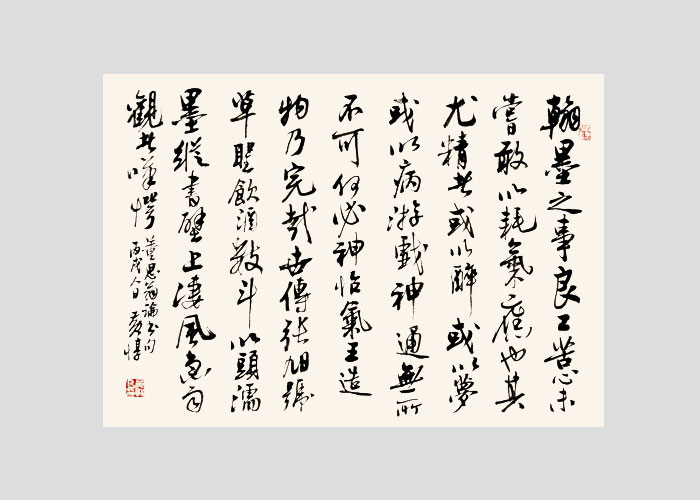 翰墨之事良工苦心未
嘗敢以耗氣應也其
尤精者或以醉或以夢
或以病游戲神通無所
不可何必神怡氣王造
物乃完哉世傳張旭號
草聖飲酒數斗以頭濡
墨縱書壁上淒風急雨
觀者嘆愕
董思翁論書句
丙戌人日